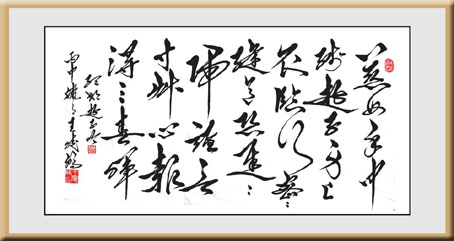 慈母手中
线游子身上
衣临行密〻
缝意恐迟〻
归谁言
寸草心报
得三春晖
游子吟
丙申